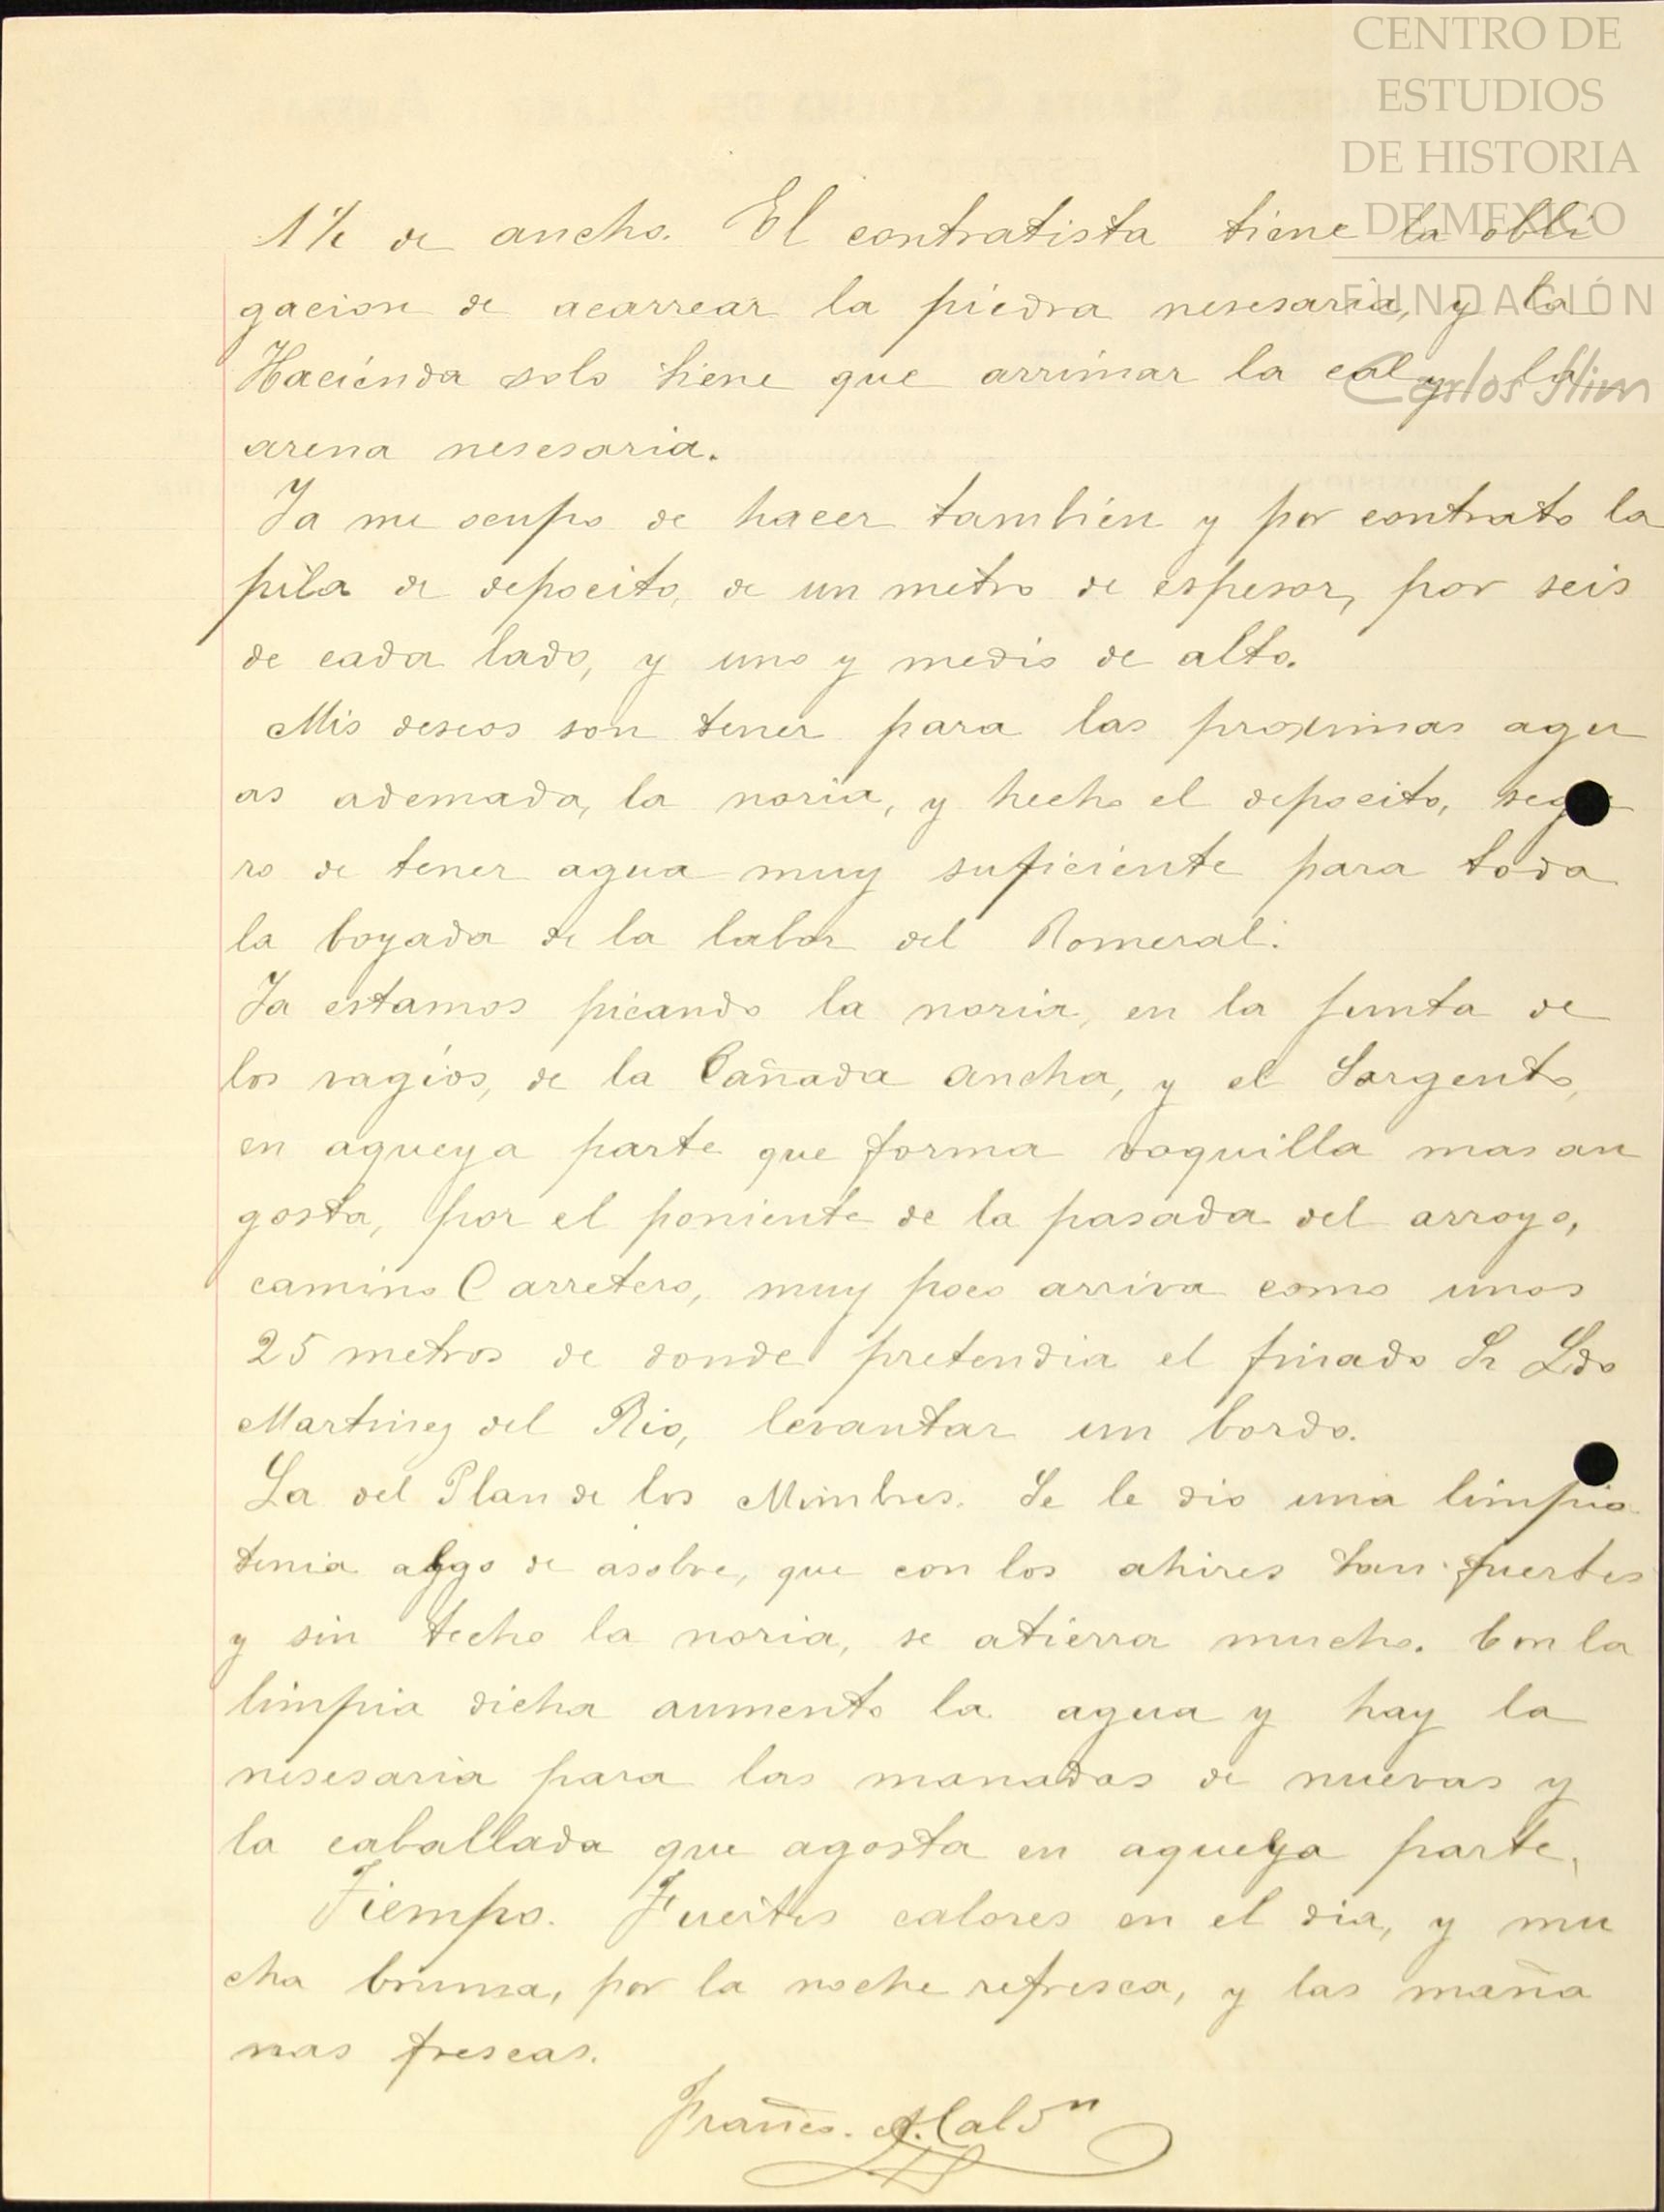 CENTRO DE
ESTUDIOS
DE HISTORIA
DE MEXICO
FUNDACIÓN
Carlos Slim
1½ de ancho. El contratista tiene la obli
gacion de acarrear la piedra nesesaria, y la
Hacienda solo tiene que arrimar la cal y la
arena nesesaria.
Ya me ocupo de hacer tambien y por contrato la
pila de depocito, de un metro de espesor, por seis
de cada lado, y uno y medio de alto.
Mis deseos son tener para las proximas agu
as ademada, la noria, y hecho el depocito, segu
ro de tener agua muy suficiente para toda
la boyada de la labor del Romeral.
Ya estamos picando la noria, en la junta de
los vagíos, de la Cañada ancha, y el Sargento,
en agueya parte que forma voquilla mas an
gosta, por el poniente de la pasada del arroyo,
camino Carretero, muy poco arriva como unos
25 metros de donde pretendia el finado Sr Ldo
Martinez del Rio, levantar un bordo.
La del Plan de los Mimbres. Se le dio una limpia
tenia algo de asolve, que con los ahires tan fuertes
y sin techo la noria, se atierra mucho. Con la
limpia dicha aumento la agua y hay la
nesesaria para las manadas de nuevas y
la caballada que agosta en agueya parte.
Tiempo. Fuertes calores en el dia, y mu
cha bruma, por la noche refresca, y las maña
nas frescas.
Franco. A. Caldn